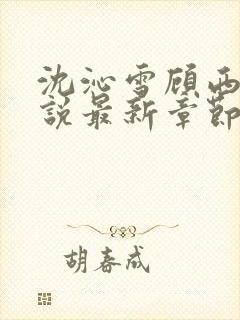 沈沁雪顾西
说最新章节
胡春成